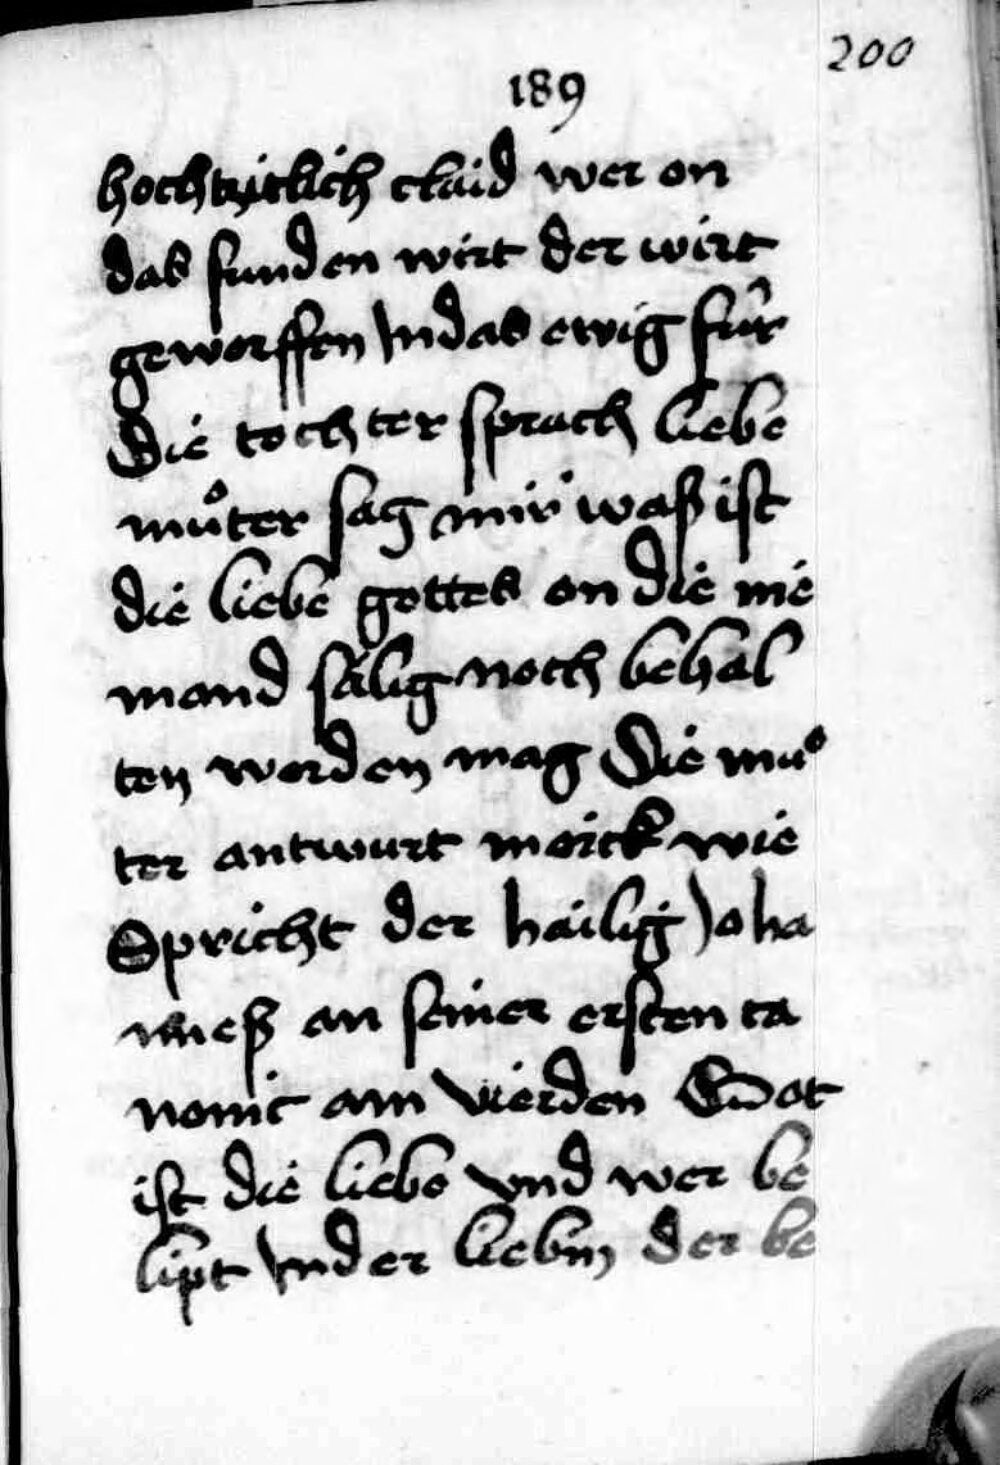 200
189
hochzitlich claid wer on
das funden wirt der wirt
geworffen Indas ewig fûr
Die tochter sprach liebe
můter sag mir waß ist
die liebe gottes on die nie
mand sälig noch behal
ten werden mag Die mů
ter antwurt merck wie
Spricht der hailig Joha
nneß an seiner ersten ca
nonic am vierden Got
ist die liebe vnd wer be
lipt Inder liebin der be